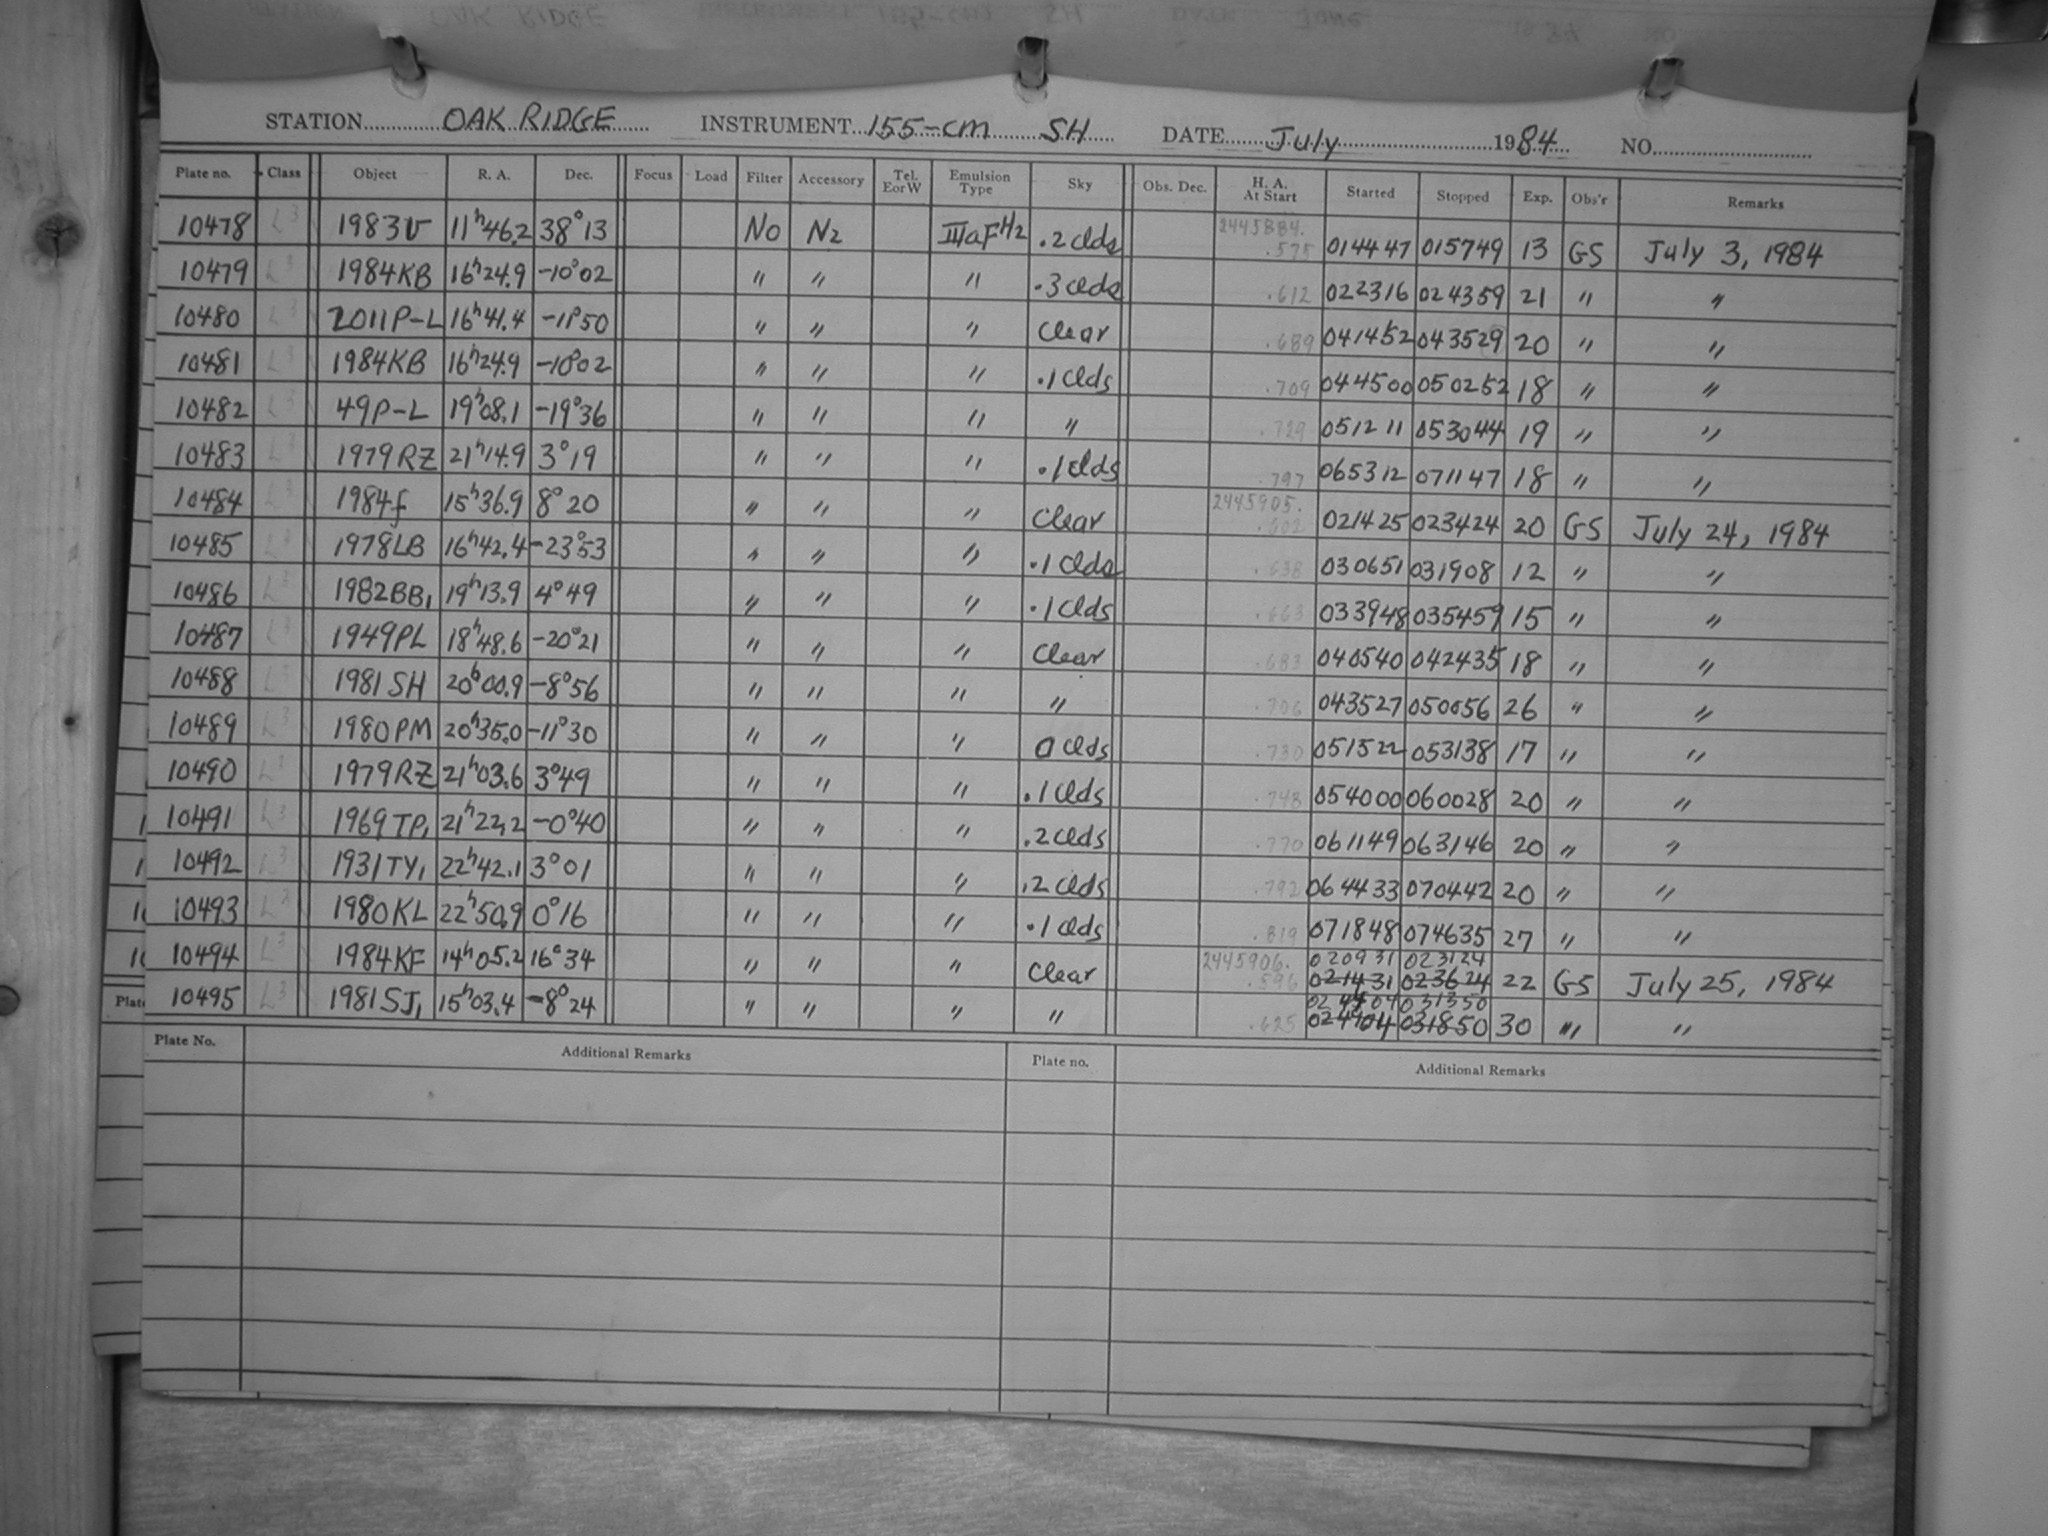 STATION OAK RIDGE INSTRUMENT 155-cm SH DATE July 1984 NO.
Plate no. Class Object R. A. Dec. Focus Load Filter Accessory Tel. E or W Emulsion Type Sky Obs. Dec. H. A. At Start Started Stopped Exp. Obs'r Remarks
10478 L3 1983v 11h46.2 38°13 No N2 IIIaF H2 .2 clds 2445884. .575 014447 015749 13 GS July 3, 1984
10479 L3 1984KB 16h24.9 -10°02 " " " .3 clds .612 022316 024359 21 " "
10480 L3 2011P-L 16h41.4 -11°50 " " " clear .689 041452 043529 20 " "
10481 L3 1984KB 16h24.9 -10°02 " " " .1 clds .709 044500 050252 18 " "
10482 L3 49P-L 19h08.1 -19°36 " " " " .729 051211 053044 19 " "
10483 L3 1979RZ 21h14.9 3°19 " " " .1 clds .797 065312 071147 18 " "
10484 L3 1984f 15h36.9 8°20 " " " clear 2445905. .602 021425 023424 20 GS July 24, 1984
10485 L3 1978LB 16h42.4 -23°53 " " " .1 clds .638 030651 031908 12 " "
10486 L3 1982BB1 19h13.9 4°49 " " " .1 clds .663 033948 035459 15 " "
10487 L3 1949PL 18h48.6 -20°21 " " " clear .683 040540 042435 18 " "
10488 L3 1981SH 20h00.9 -8°56 " " " " .706 043527 050056 26 " "
10489 L3 1980PM 20h35.0 -11°30 " " " 0 clds .730 051522 053138 17 " "
10490 L3 1979RZ 21h03.6 3°49 " " " .1 clds .748 054000 060028 20 " "
10491 L3 1969TP1 21h22.2 -0°40 " " " .2 clds .770 061149 063146 20 " "
10492 L3 1931TY1 22h42.1 3°01 " " " .2 clds .792 064433 070442 20 " "
10493 L3 1980KL 22h50.9 0°16 " " " .1 clds .819 071848 074635 27 " "
10494 L3 1984KF 14h05.2 16°34 " " " clear 2445906. .596 020931 023124 021431 023624 22 GS July 25, 1984
10495 L3 1981SJ1 15h03.4 -8°24 " " " " .625 031350 031850 30 " "
Plate No. Additional Remarks Plate no. Additional Remarks